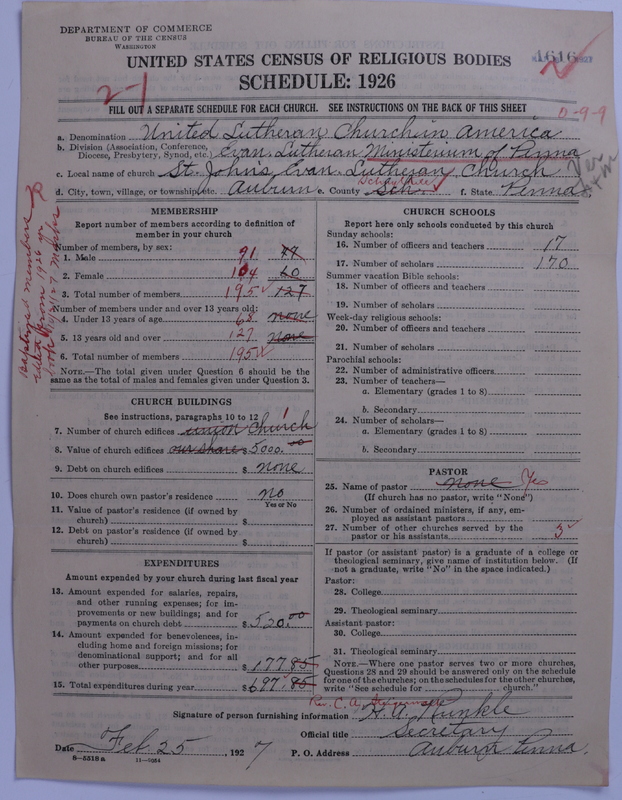 DEPARTMENT OF COMMERCE
BUREAU OF THE CENSUS
WASHINGTON
UNITED STATES CENSUS OF RELIGIOUS BODIES
1616
SCHEDULE: 1926
2-1
FILL OUT A SEPARATE SCHEDULE FOR EACH CHURCH. SEE INSTRUCTIONS ON THE BACK OF THIS SHEET
0-9-9
a. Denomination United Lutheran Church in America
b. Division (Association, Conference, Diocese, Presbytery, Synod, etc.) Evan. Lutheran Ministerium of Penna
c. Local name of church St. John's Evan. Lutheran Church
d. City, town, village, or township, etc. Auburn e. County Sch. Schuylkill f. State Penna.
MEMBERSHIP
Report number of members according to definition of
member in your church
Number of members, by sex:
1. Male 91 47
2. Female 104 60
3. Total number of members 195 127
Number of members under and over 13 years old:
4. Under 13 years of age 68 none
5. 13 years old and over 127 none
6. Total number of members 195
NOTE.—The total given under Question 6 should be the
same as the total of males and females given under Question 3.
Baptized members
CHURCH BUILDINGS
See instructions, paragraphs 10 to 12
7. Number of church edifices union Church 1
8. Value of church edifices our share $ 5000.00
9. Debt on church edifices $ none
10. Does church own pastor's residence no
Yes or No
11. Value of pastor's residence (if owned by
church) $
12. Debt on pastor's residence (if owned by
church) $
EXPENDITURES
Amount expended by your church during last fiscal year
13. Amount expended for salaries, repairs,
and other running expenses; for im-
provements or new buildings; and for
payments on church debt $ 520.00
14. Amount expended for benevolences, in-
cluding home and foreign missions; for
denominational support; and for all
other purposes $ 177 85
15. Total expenditures during year $ 697.85
CHURCH SCHOOLS
Report here only schools conducted by this church
Sunday schools:
16. Number of officers and teachers 17
17. Number of scholars 170
Summer vacation Bible schools:
18. Number of officers and teachers
19. Number of scholars
Week-day religious schools:
20. Number of officers and teachers
21. Number of scholars
Parochial schools:
22. Number of administrative officers
23. Number of teachers—
a. Elementary (grades 1 to 8)
b. Secondary
24. Number of scholars—
a. Elementary (grades 1 to 8)
b. Secondary
PASTOR
25. Name of pastor none Yes
(If church has no pastor, write "None")
26. Number of ordained ministers, if any, em-
ployed as assistant pastors
27. Number of other churches served by the
pastor or his assistants 3
If pastor (or assistant pastor) is a graduate of a college or
theological seminary, give name of institution below. (If
not a graduate, write "No" in the space indicated.)
Pastor:
28. College
29. Theological seminary
Assistant pastor:
30. College
31. Theological seminary
NOTE.—Where one pastor serves two or more churches,
Questions 28 and 29 should be answered only on the schedule
for one of the churches; on the schedules for the other churches,
write "See schedule for church."
Rev. C. A.
Signature of person furnishing information H. A. Runkle
Official title Secretary
Date Feb. 25, 1927 P. O. Address Auburn Penna.
8-5518a 11-9054